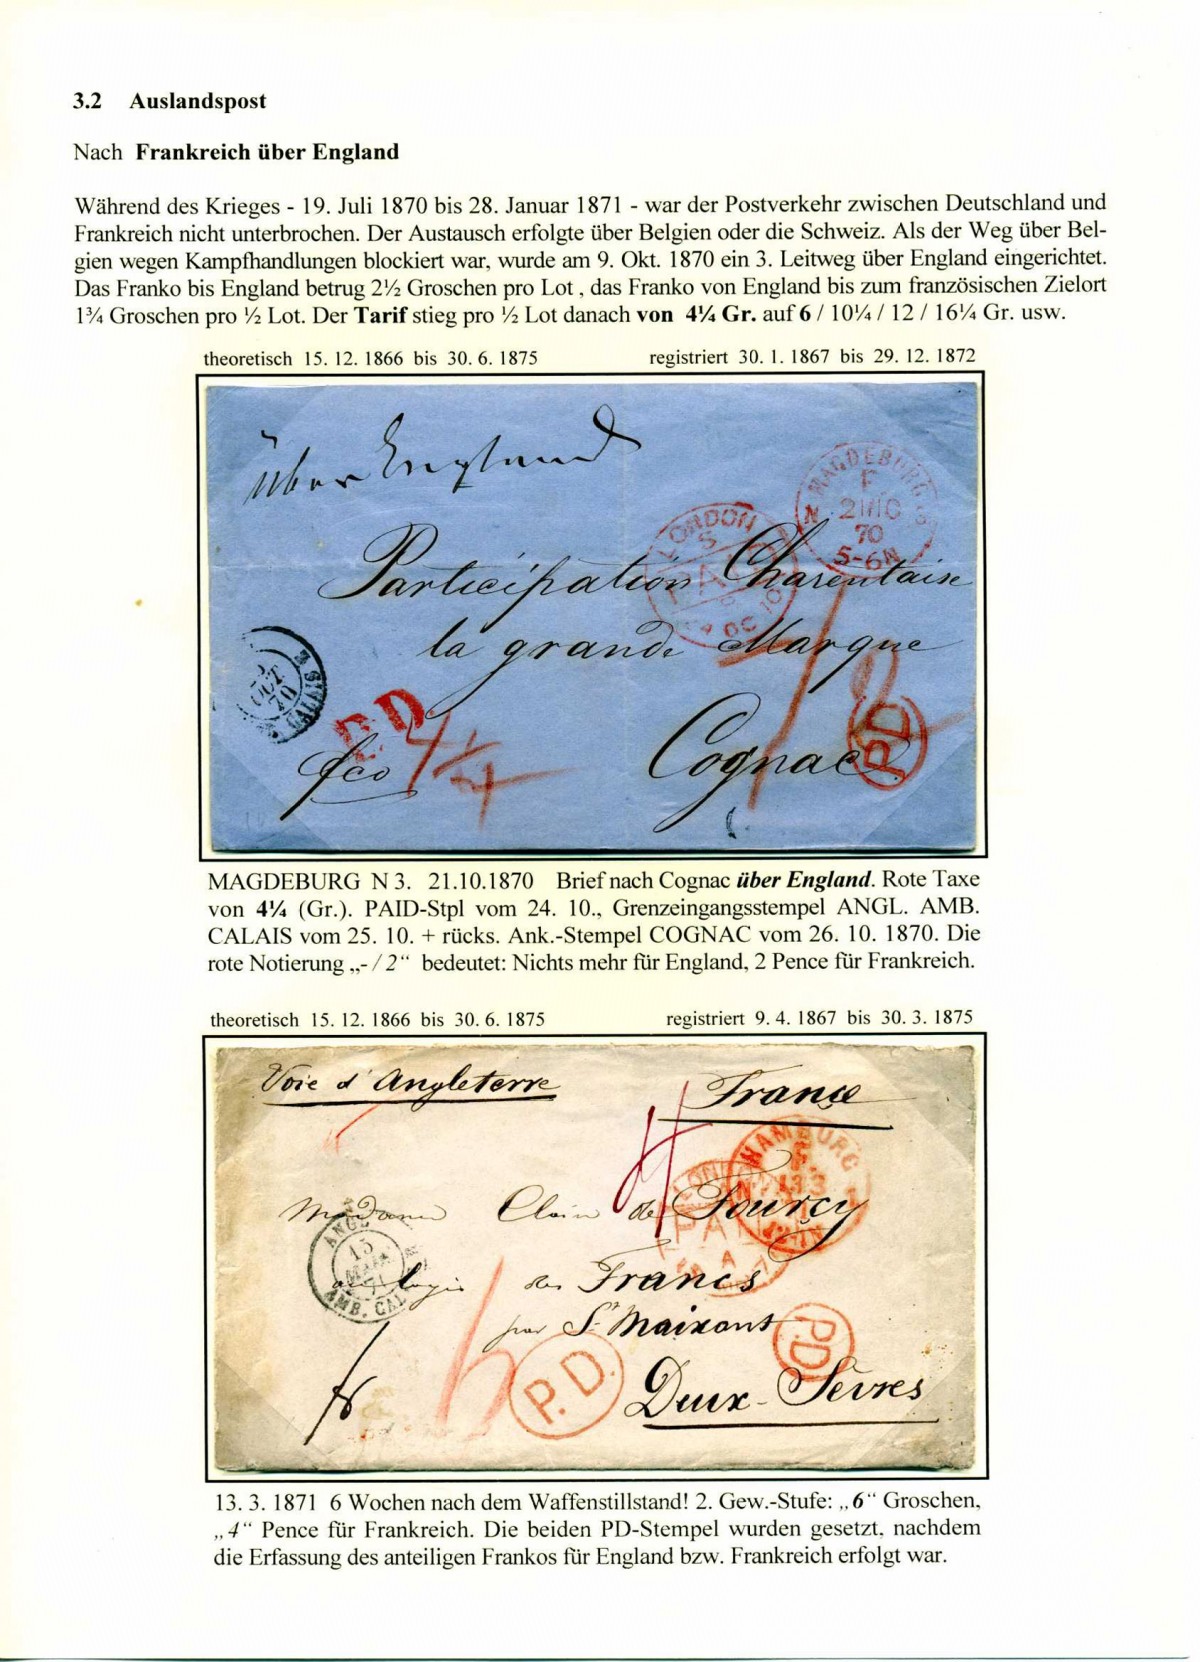 3.2 Auslandspost
Nach Frankreich über England
Während des Krieges - 19. Juli 1870 bis 28. Januar 1871 - war der Postverkehr zwischen Deutschland und
Frankreich nicht unterbrochen. Der Austausch erfolgte über Belgien oder die Schweiz. Als der Weg über Bel-
gien wegen Kampfhandlungen blockiert war, wurde am 9. Okt. 1870 ein 3. Leitweg über England eingerichtet.
Das Franko bis England betrug 2½ Groschen pro Lot , das Franko von England bis zum französischen Zielort
1¾ Groschen pro ½ Lot. Der Tarif stieg pro ½ Lot danach von 4¼ Gr. auf 6 / 10¼ / 12 / 16¼ Gr. usw.
theoretisch 15. 12. 1866 bis 30. 6. 1875 registriert 30. 1. 1867 bis 29. 12. 1872
über England
MAGDEBURG
F
70
5-6N
LONDON
S
PAID
OC 70
Participation Charentaise
la grande Marque
OCT
70
CALAIS
P.D.
fco 4¼
Cognac
PD
MAGDEBURG N 3. 21.10.1870 Brief nach Cognac über England. Rote Taxe
von 4¼ (Gr.). PAID-Stpl vom 24. 10., Grenzeingangsstempel ANGL. AMB.
CALAIS vom 25. 10. + rücks. Ank.-Stempel COGNAC vom 26. 10. 1870. Die
rote Notierung „- / 2“ bedeutet: Nichts mehr für England, 2 Pence für Frankreich.
theoretisch 15. 12. 1866 bis 30. 6. 1875 registriert 9. 4. 1867 bis 30. 3. 1875
Voie d'Angleterre
France
4
HAMBURG
F
13 3
LON
PAI
A
Madame Clain de Fourcy
ANGL
15
MARS
71
AMB. CAL
au logis des Francs
par St Maixant
P.D.
6
P.D.
Deux-Sèvres
13. 3. 1871 6 Wochen nach dem Waffenstillstand! 2. Gew.-Stufe: „6“ Groschen,
„4“ Pence für Frankreich. Die beiden PD-Stempel wurden gesetzt, nachdem
die Erfassung des anteiligen Frankos für England bzw. Frankreich erfolgt war.